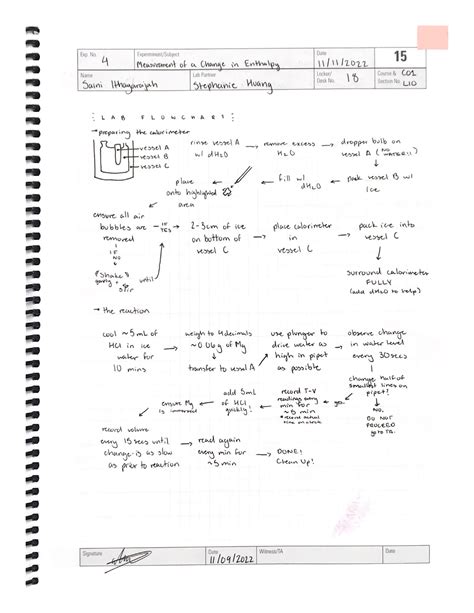 Exp. No. 4
Experiment/Subject Measurement of a Change in Enthalpy
Date 11/11/2022
15
Name Saini
Lab Partner Stephanie Huang
Locker/Desk No. 18
Course & Section No. C01 L10
LAB FLOWCHART:
→ preparing the calorimeter
vessel A
vessel B
vessel C
rinse vessel A w/ dH2O → remove excess H2O → dropper bulb on vessel A (NO WATER!!)
pack vessel B w/ ice
fill w/ dH2O
place onto highlighted area
ensure all air bubbles are removed
IF YES → 2-3cm of ice on bottom of vessel C → place calorimeter in vessel C → pack ice into vessel C
IF NO
shake & stir
until
surround calorimeter FULLY (add dH2O to help)
→ the reaction
cool ~5mL of HCl in ice water for 10 mins → weigh to 4 decimals ~0.06g of Mg
transfer to vessel A → use plunger to drive water as high in pipet as possible → observe change in water level every 30 secs
change half of smallest lines on pipet?
NO. DO NOT PROCEED go to TA.
yes
record T-V readings every min for ~5 min
* record actual time on clock
add 5mL of HCl quickly!
ensure Mg is immersed
record volume every 15 secs until change is as slow as prior to reaction → read again every min for ~5min → DONE! Clean Up!
Signature
Date 11/09/2022
Witness/TA
Date